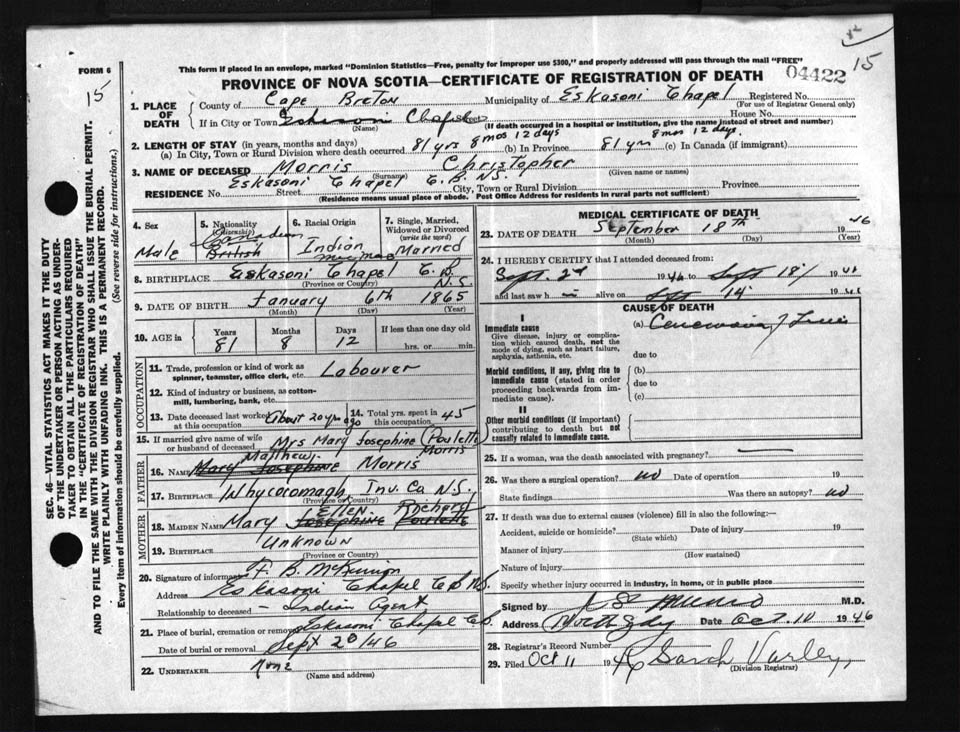 15
04422
FORM 6
This form if placed in an envelope, marked "Dominion Statistics—Free, penalty for improper use $300," and properly addressed will pass through the mail "FREE"
15
PROVINCE OF NOVA SCOTIA—CERTIFICATE OF REGISTRATION OF DEATH
1. PLACE OF DEATH
County of Cape Breton Municipality of Eskasoni Chapel Registered No.
(For use of Registrar General only)
If in City or Town Eskasoni Chapel Street House No.
(Name) (If death occurred in a hospital or institution, give the name instead of street and number)
2. LENGTH OF STAY (in years, months and days)
(a) In City, Town or Rural Division where death occurred 81 yrs 8 mos 12 days (b) In Province 81 yrs 8 mos 12 days. (c) In Canada (if immigrant)
3. NAME OF DECEASED Morris Christopher
(Surname) (Given name or names)
RESIDENCE No. Eskasoni Chapel C.B. N.S. Street City, Town or Rural Division Province
(Residence means usual place of abode. Post Office Address for residents in rural parts not sufficient)
4. Sex
Male
5. Nationality (Citizenship)
Canadian
British
6. Racial Origin
Indian
7. Single, Married, Widowed or Divorced (write the word)
Married
8. BIRTHPLACE Eskasoni Chapel C.B. N.S.
(Province or Country)
9. DATE OF BIRTH January 6th 1865
(Month) (Day) (Year)
10. AGE in Years Months Days If less than one day old
81 8 12 hrs. or min.
OCCUPATION
11. Trade, profession or kind of work as spinner, teamster, office clerk, etc. Labourer
12. Kind of industry or business, as cotton-mill, lumbering, bank, etc.
13. Date deceased last worked at this occupation About 20 yrs ago
14. Total yrs. spent in this occupation 45
15. If married give name of wife or husband of deceased Mrs Mary Josephine (Poulette) Morris
FATHER
16. Name Mary Josephine Matthew Morris
17. Birthplace Whycocomagh Inv. Co N.S.
(Province or Country)
MOTHER
18. MAIDEN NAME Mary Josephine Poulette Ellen
19. BIRTHPLACE Unknown
(Province or Country)
20. Signature of informant F. B. McKinnon
Address Eskasoni Chapel C.B. N.S.
Relationship to deceased — Indian Agent
21. Place of burial, cremation or removal Eskasoni Chapel C.B.
Date of burial or removal Sept 20/46
22. UNDERTAKER None
(Name and address)
MEDICAL CERTIFICATE OF DEATH
23. DATE OF DEATH September 18th 1946
(Month) (Day) (Year)
24. I HEREBY CERTIFY that I attended deceased from:
Sept. 2nd 1946 to Sept 18th 1946
and last saw h im alive on Sept 14 1946
CAUSE OF DEATH
I
Immediate cause
Give disease, injury or complication which caused death, not the mode of dying, such as heart failure, asphyxia, asthenia, etc.
(a)
due to
Morbid conditions, if any, giving rise to immediate cause (stated in order proceeding backwards from immediate cause).
(b)
due to
(c)
II
Other morbid conditions (if important) contributing to death but not causally related to immediate cause.
25. If a woman, was the death associated with pregnancy? —
26. Was there a surgical operation? no Date of operation 19
State findings Was there an autopsy? no
27. If death was due to external causes (violence) fill in also the following:—
Accident, suicide or homicide? Date of injury 19
(State which)
Manner of injury
(How sustained)
Nature of injury
Specify whether injury occurred in industry, in home, or in public place
Signed by Munro M.D.
Address Date Oct. 10 1946
28. Registrar's Record Number
29. Filed Oct 11 1946 Sarah Varley,
(Division Registrar)
SEC. 46— VITAL STATISTICS ACT MAKES IT THE DUTY
OF THE UNDERTAKER OR PERSON ACTING AS UNDER-
TAKER TO OBTAIN ALL THE PARTICULARS REQUIRED
IN THE "CERTIFICATE OF REGISTRATION OF DEATH"
AND TO FILE THE SAME WITH THE DIVISION REGISTRAR WHO SHALL ISSUE THE BURIAL PERMIT.
WRITE PLAINLY WITH UNFADING INK. THIS IS A PERMANENT RECORD.
Every item of information should be carefully supplied. (See reverse side for instructions.)